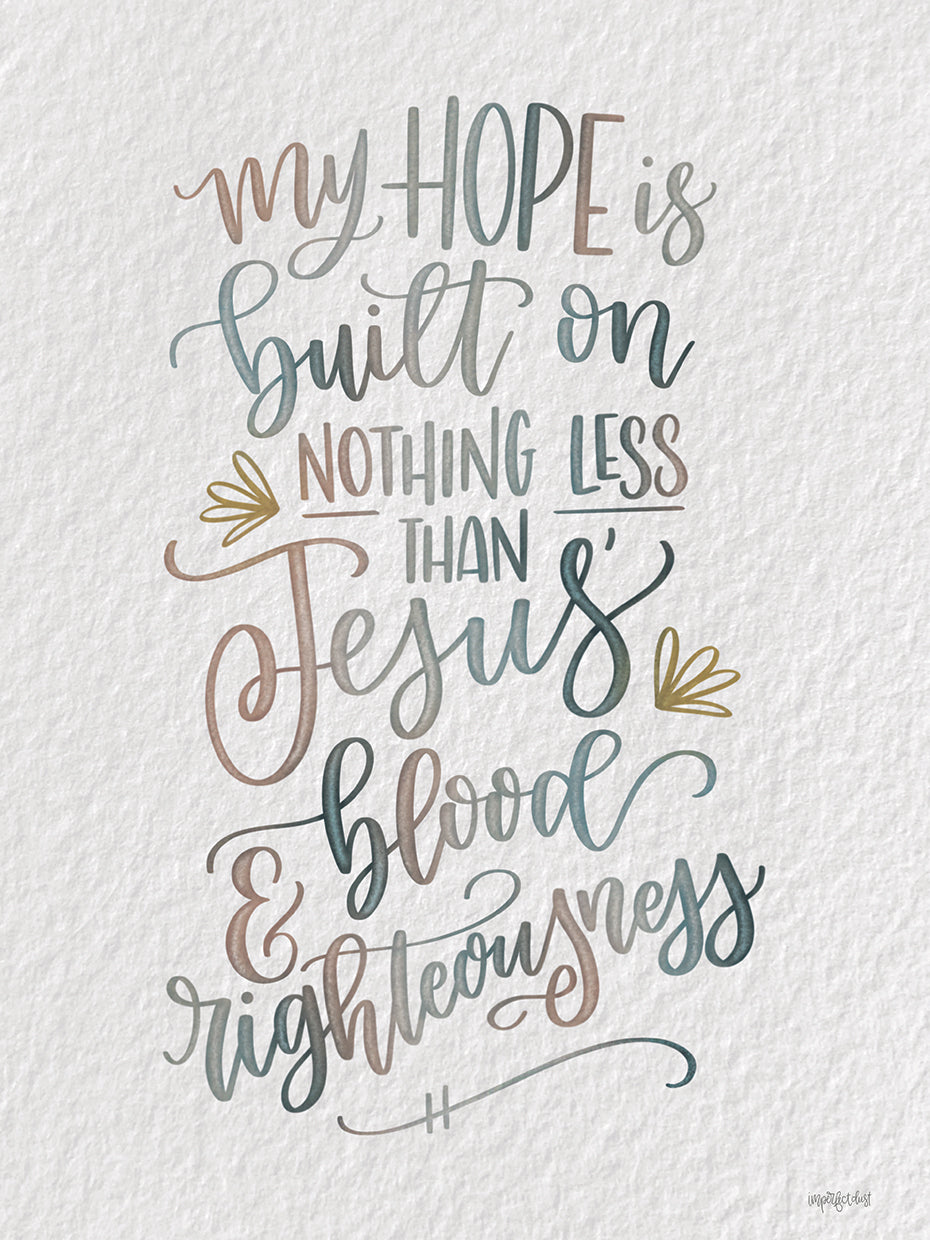 my HOPE is
built on
NOTHING LESS
THAN
Jesus'
blood
&
righteousness
imperfect dust